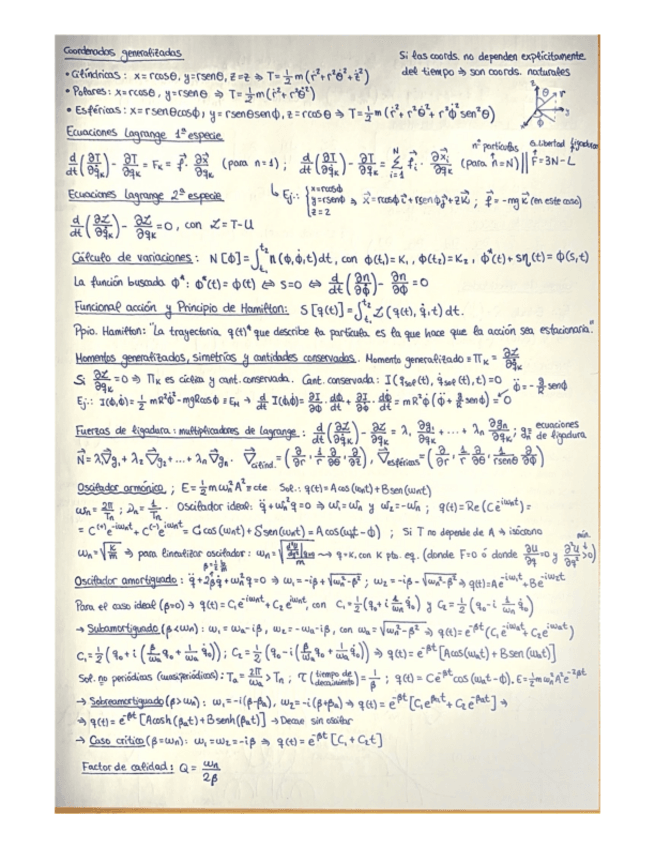 Coordenadas generalizadas
Si las coords. no dependen explícitamente
del tiempo ⇒ son coords. naturales
• Cilíndricas: x=rcosθ, y=rsenθ, z=z ⇒ T=½m(ṙ²+r²θ̇²+ż²)
• Polares: x=rcosθ, y=rsenθ ⇒ T=½m(ṙ²+r²θ̇²)
• Esféricas: x=rsenθcosϕ, y=rsenθsenϕ, z=rcosθ ⇒ T=½m(ṙ²+r²θ̇²+r²ϕ̇²sen²θ)
Ecuaciones Lagrange 1ª especie
nº partículas
d/dt(∂T/∂q̇ₖ) - ∂T/∂qₖ = Fₖ = f⃗·∂x⃗/∂qₖ (para n=1); d/dt(∂T/∂q̇ₖ) - ∂T/∂qₖ = Σᵢ₌₁ᴺ f⃗ᵢ·∂x⃗ᵢ/∂qₖ (para n=N) || F=3N-L
Ecuaciones Lagrange 2ª especie
↳ Ej.: {x=rcosϕ y=rsenϕ z=z ⇒ x⃗=rcosϕî+rsenϕĵ+zk̂; f⃗=-mgk̂ (en este caso)
d/dt(∂ℒ/∂q̇ₖ) - ∂ℒ/∂qₖ = 0, con ℒ=T-U
Cálculo de variaciones: N[ϕ]=∫ₜ₁ᵗ² n(ϕ,ϕ̇,t)dt, con ϕ(t₁)=K₁, ϕ(t₂)=K₂, ϕ*(t)+sη(t)=ϕ(s,t)
La función buscada ϕ*: ϕ*(t)=ϕ(t) ⇔ s=0 ⇔ d/dt(∂n/∂ϕ̇) - ∂n/∂ϕ = 0
Funcional acción y Principio de Hamilton: S[q(t)]=∫ₜ₁ᵗ² ℒ(q(t),q̇,t)dt.
Ppio. Hamilton: "La trayectoria q(t)* que describe la partícula es la que hace que la acción sea estacionaria."
Momentos generalizados, simetrías y cantidades conservadas. Momento generalizado ≡ Πₖ = ∂ℒ/∂q̇ₖ
Si ∂ℒ/∂qₖ=0 ⇒ Πₖ es cíclica y cant. conservada. Cant. conservada: I(q(t),q̇(t),t)=0
ϕ̈=-g/R senϕ
Ej.: I(ϕ,ϕ̇)=½mR²ϕ̇²-mgRcosϕ ≡ E → d/dt I(ϕ,ϕ̇)=∂I/∂ϕ·dϕ/dt+∂I/∂ϕ̇·dϕ̇/dt = mR²ϕ̇(ϕ̈+g/R senϕ)=0
Fuerzas de ligadura: multiplicadores de Lagrange: d/dt(∂ℒ/∂q̇ₖ) - ∂ℒ/∂qₖ = λ₁∂g₁/∂qₖ+...+λₙ∂gₙ/∂qₖ; gₙ ≡ ecuaciones de ligadura
N⃗=λ₁∇⃗g₁+λ₂∇⃗g₂+...+λₙ∇⃗gₙ. ∇⃗cilínd.=(∂/∂r, 1/r ∂/∂θ, ∂/∂z), ∇⃗esféricas=(∂/∂r, 1/r ∂/∂θ, 1/(rsenθ) ∂/∂ϕ)
Oscilador armónico; E=½mωₙ²A²=cte Sol.: q(t)=Acos(ωₙt)+Bsen(ωₙt)
ωₙ=2π/Tₙ; 1/Tₙ. Oscilador ideal: q̈+ωₙ²q=0 ⇒ ω₁=ωₙ y ω₂=-ωₙ; q(t)=Re(Ce^(iωₙt))=
=C⁽⁺⁾e^(-iωₙt)+C⁽⁻⁾e^(iωₙt)=Ccos(ωₙt)+Ssen(ωₙt)=Acos(ωₙt-ϕ); Si T no depende de A → isócrono
ωₙ=√(k/m) ⇒ para linealizar oscilador: → q=K, con K pto. eq. (donde F=0 ó donde ∂U/∂q=0 y ∂²U/∂q²>0)
mín.
Oscilador amortiguado: q̈+2βq̇+ωₙ²q=0 ⇒ ω₁=-iβ+√(ωₙ²-β²); ω₂=-iβ-√(ωₙ²-β²) ⇒ q(t)=Ae^(iω₁t)+Be^(iω₂t)
Para el caso ideal (β=0) ⇒ q(t)=C₁e^(-iωₙt)+C₂e^(iωₙt), con C₁=½(q₀+i 1/ωₙ q̇₀) y C₂=½(q₀-i 1/ωₙ q̇₀)
→ Subamortiguado (β<ωₙ): ω₁=ωₐ-iβ, ω₂=-ωₐ-iβ, con ωₐ=√(ωₙ²-β²) ⇒ q(t)=e^(-βt)(C₁e^(-iωₐt)+C₂e^(iωₐt))
C₁=½(q₀+i(β/ωₐ q₀+1/ωₐ q̇₀)); C₂=½(q₀-i(β/ωₐ q₀+1/ωₐ q̇₀)) ⇒ q(t)=e^(-βt)[Acos(ωₐt)+Bsen(ωₐt)]
Sol. no periódicas (cuasiperiódicas): Tₐ=2π/ωₐ>Tₙ; τ(tiempo de decaimiento)=1/β; q(t)=Ce^(-βt)cos(ωₐt-ϕ). E=½mωₙ²A²e^(-2βt)
→ Sobreamortiguado (β>ωₙ): ω₁=-i(β-βₐ), ω₂=-i(β+βₐ) ⇒ q(t)=e^(-βt)[C₁e^(βₐt)+C₂e^(-βₐt)] ⇒
⇒ q(t)=e^(-βt)[Acosh(βₐt)+Bsenh(βₐt)] → Decae sin oscilar
→ Caso crítico (β=ωₙ): ω₁=ω₂=-iβ ⇒ q(t)=e^(-βt)[C₁+C₂t]
Factor de calidad: Q=ωₙ/2β